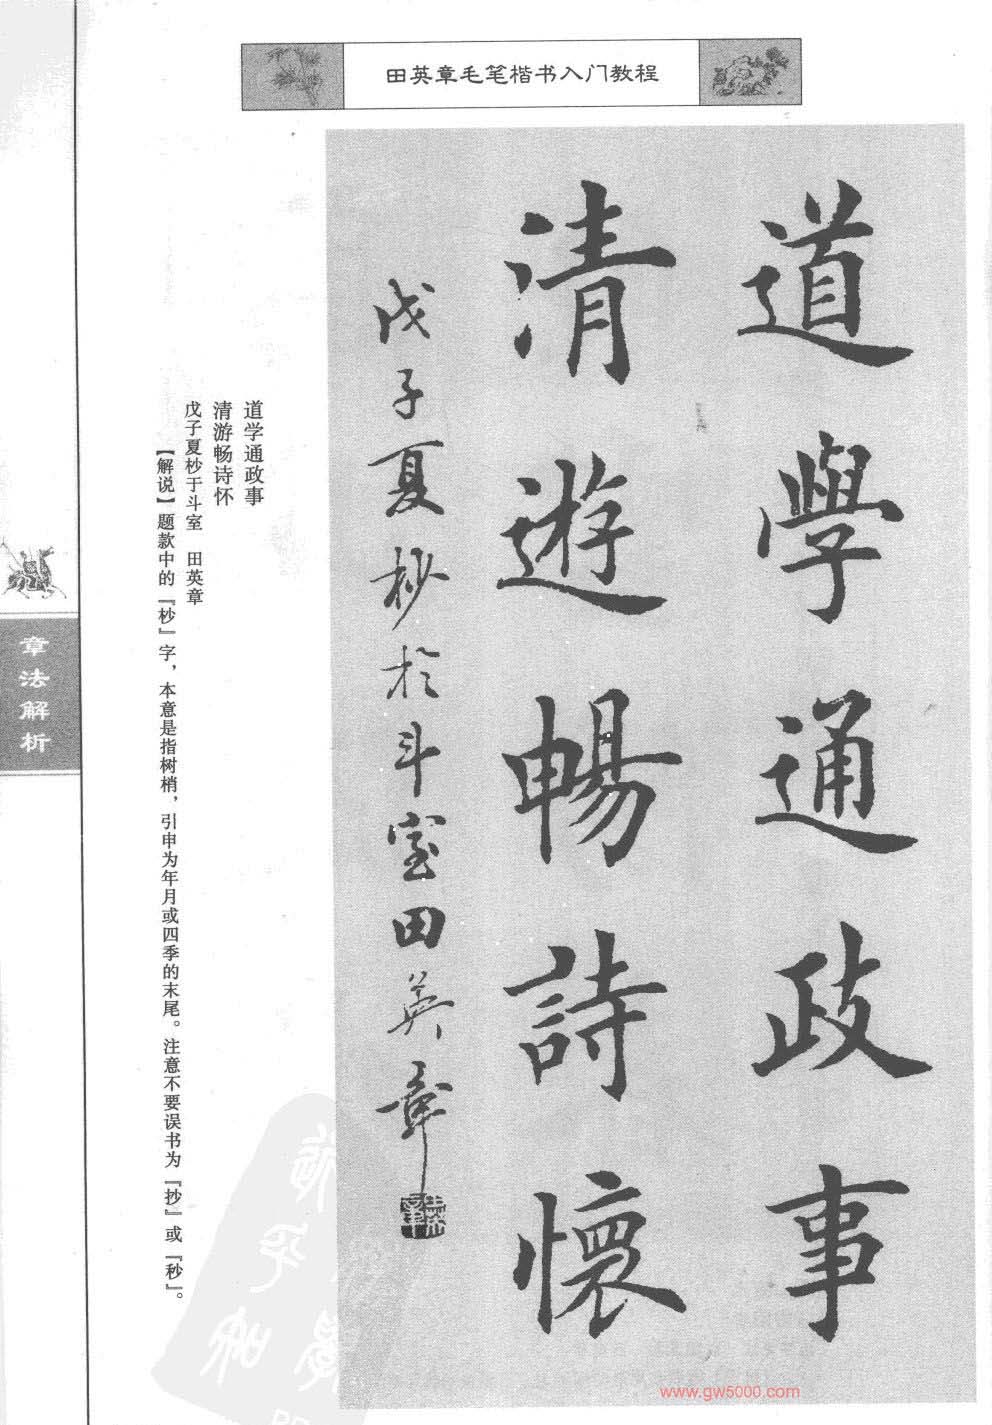 田英章毛笔楷书入门教程
道學通政事
清遊暢詩懷
戊子夏杪於斗室田英章
道学通政事
清游畅诗怀
戊子夏杪于斗室　田英章
【解说】题款中的『杪』字，本意是指树梢，引申为年月或四季的末尾。注意不要误书为『抄』或『秒』。
章法解析
www.gw5000.com